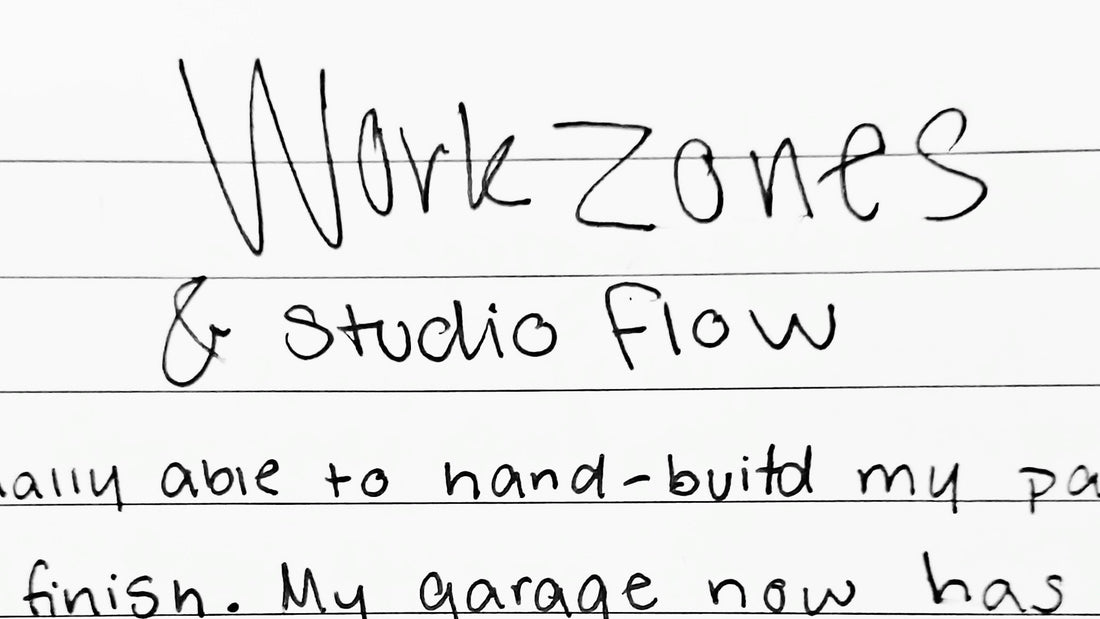 Work Zones
& Studio Flow
ally able to hand-build my pa
finish. My garage now has